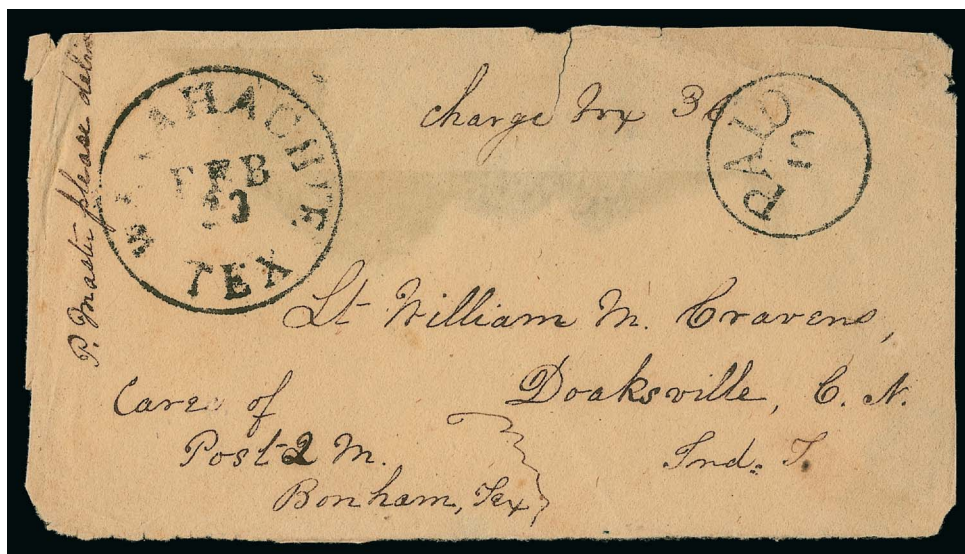 P. Master please deliv
WAXAHACHIE
FEB
23
TEX
charge Box 36.
PAID
5
Lt William M. Cravens,
Doaksville, C. N.
Ind. T.
Care of
Post Q M.
Bonham, Tex